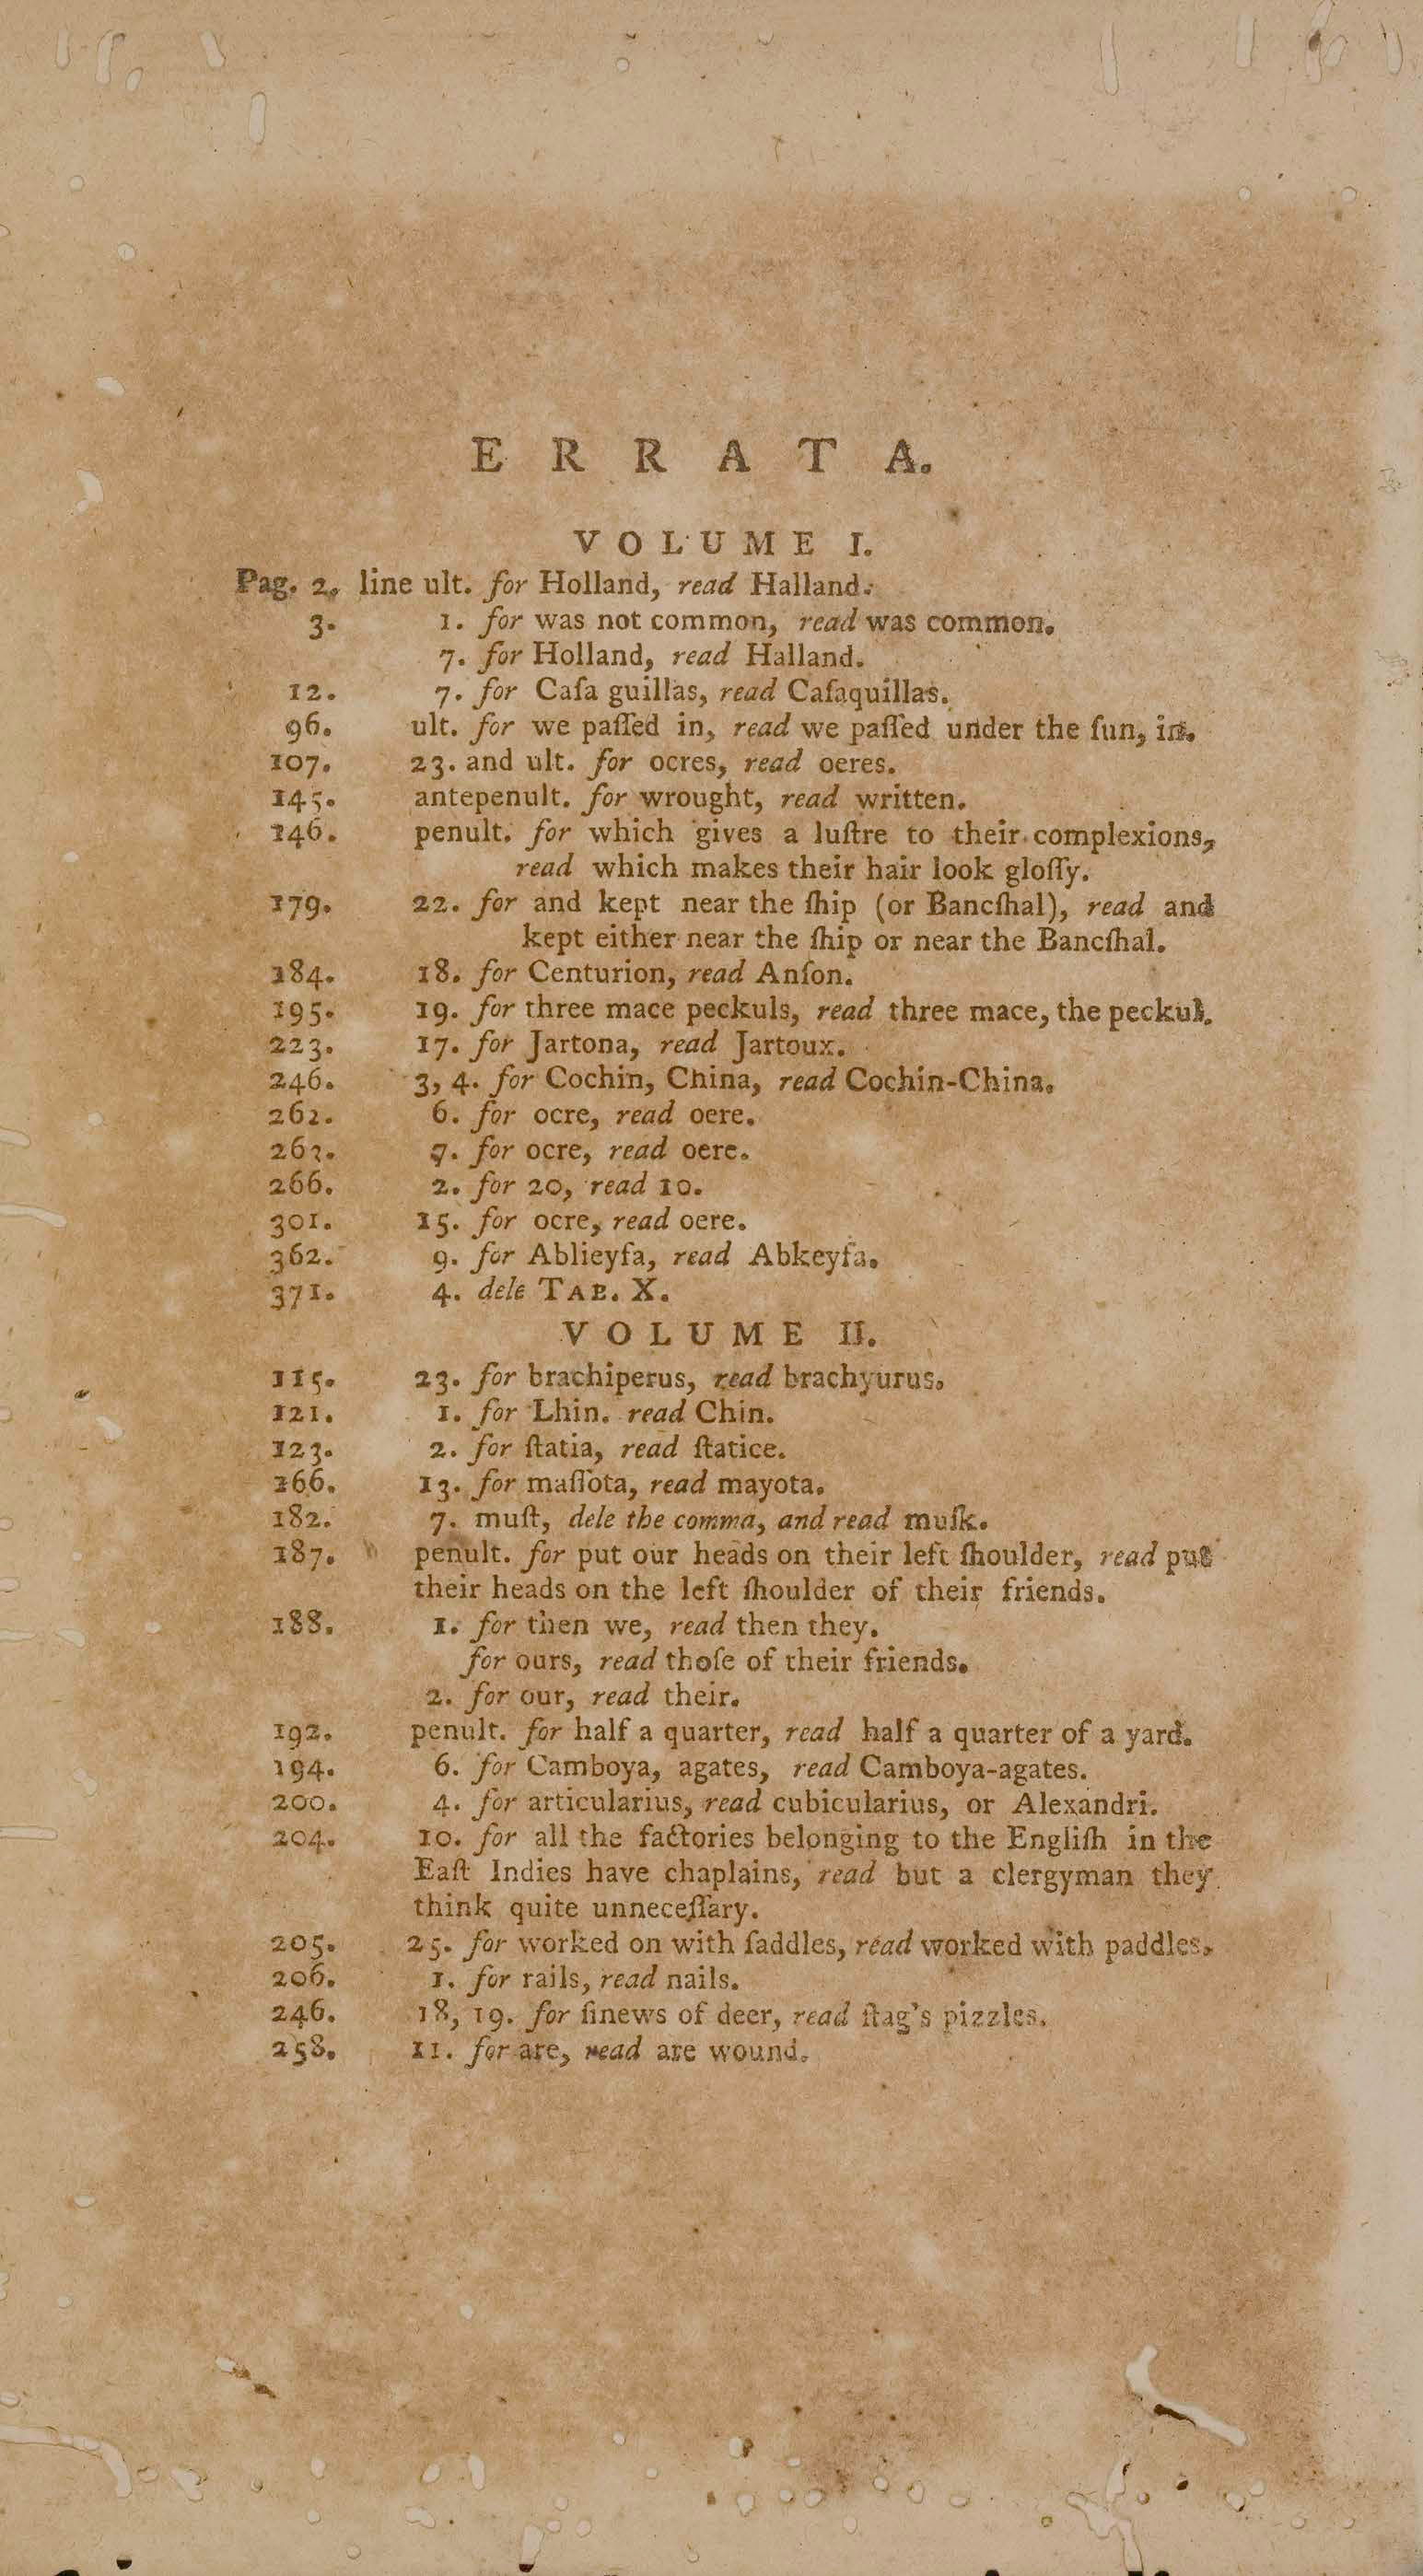 E R R A T A.
VOLUME I.
Pag. 2. line ult. for Holland, read Halland.
3. 1. for was not common, read was common.
7. for Holland, read Halland.
12. 7. for Caſa guillas, read Caſaquillas.
96. ult. for we paſſed in, read we paſſed under the ſun, in.
107. 23. and ult. for ocres, read oeres.
145. antepenult. for wrought, read written.
146. penult. for which gives a luſtre to their complexions,
read which makes their hair look gloſſy.
179. 22. for and kept near the ſhip (or Bancſhal), read and
kept either near the ſhip or near the Bancſhal.
184. 18. for Centurion, read Anſon.
195. 19. for three mace peckuls, read three mace, the peckul.
223. 17. for Jartona, read Jartoux.
246. 3, 4. for Cochin, China, read Cochin-China.
262. 6. for ocre, read oere.
263. 7. for ocre, read oere.
266. 2. for 20, read 10.
301. 15. for ocre, read oere.
362. 9. for Ablieyfa, read Abkeyfa.
371. 4. dele TAB. X.
VOLUME II.
115. 23. for brachiperus, read brachyurus.
121. 1. for Lhin. read Chin.
123. 2. for ſtatia, read ſtatice.
166. 13. for maſſota, read mayota.
182. 7. muſt, dele the comma, and read muſk.
187. penult. for put our heads on their left ſhoulder, read put
their heads on the left ſhoulder of their friends.
188. 1. for then we, read then they.
for ours, read thoſe of their friends.
2. for our, read their.
192. penult. for half a quarter, read half a quarter of a yard.
194. 6. for Camboya, agates, read Camboya-agates.
200. 4. for articularius, read cubicularius, or Alexandri.
204. 10. for all the factories belonging to the Engliſh in the
Eaſt Indies have chaplains, read but a clergyman they
think quite unneceſſary.
205. 25. for worked on with ſaddles, read worked with paddles.
206. 1. for rails, read nails.
246. 18, 19. for ſinews of deer, read ſtag's pizzles.
258. 11. for are, read are wound.